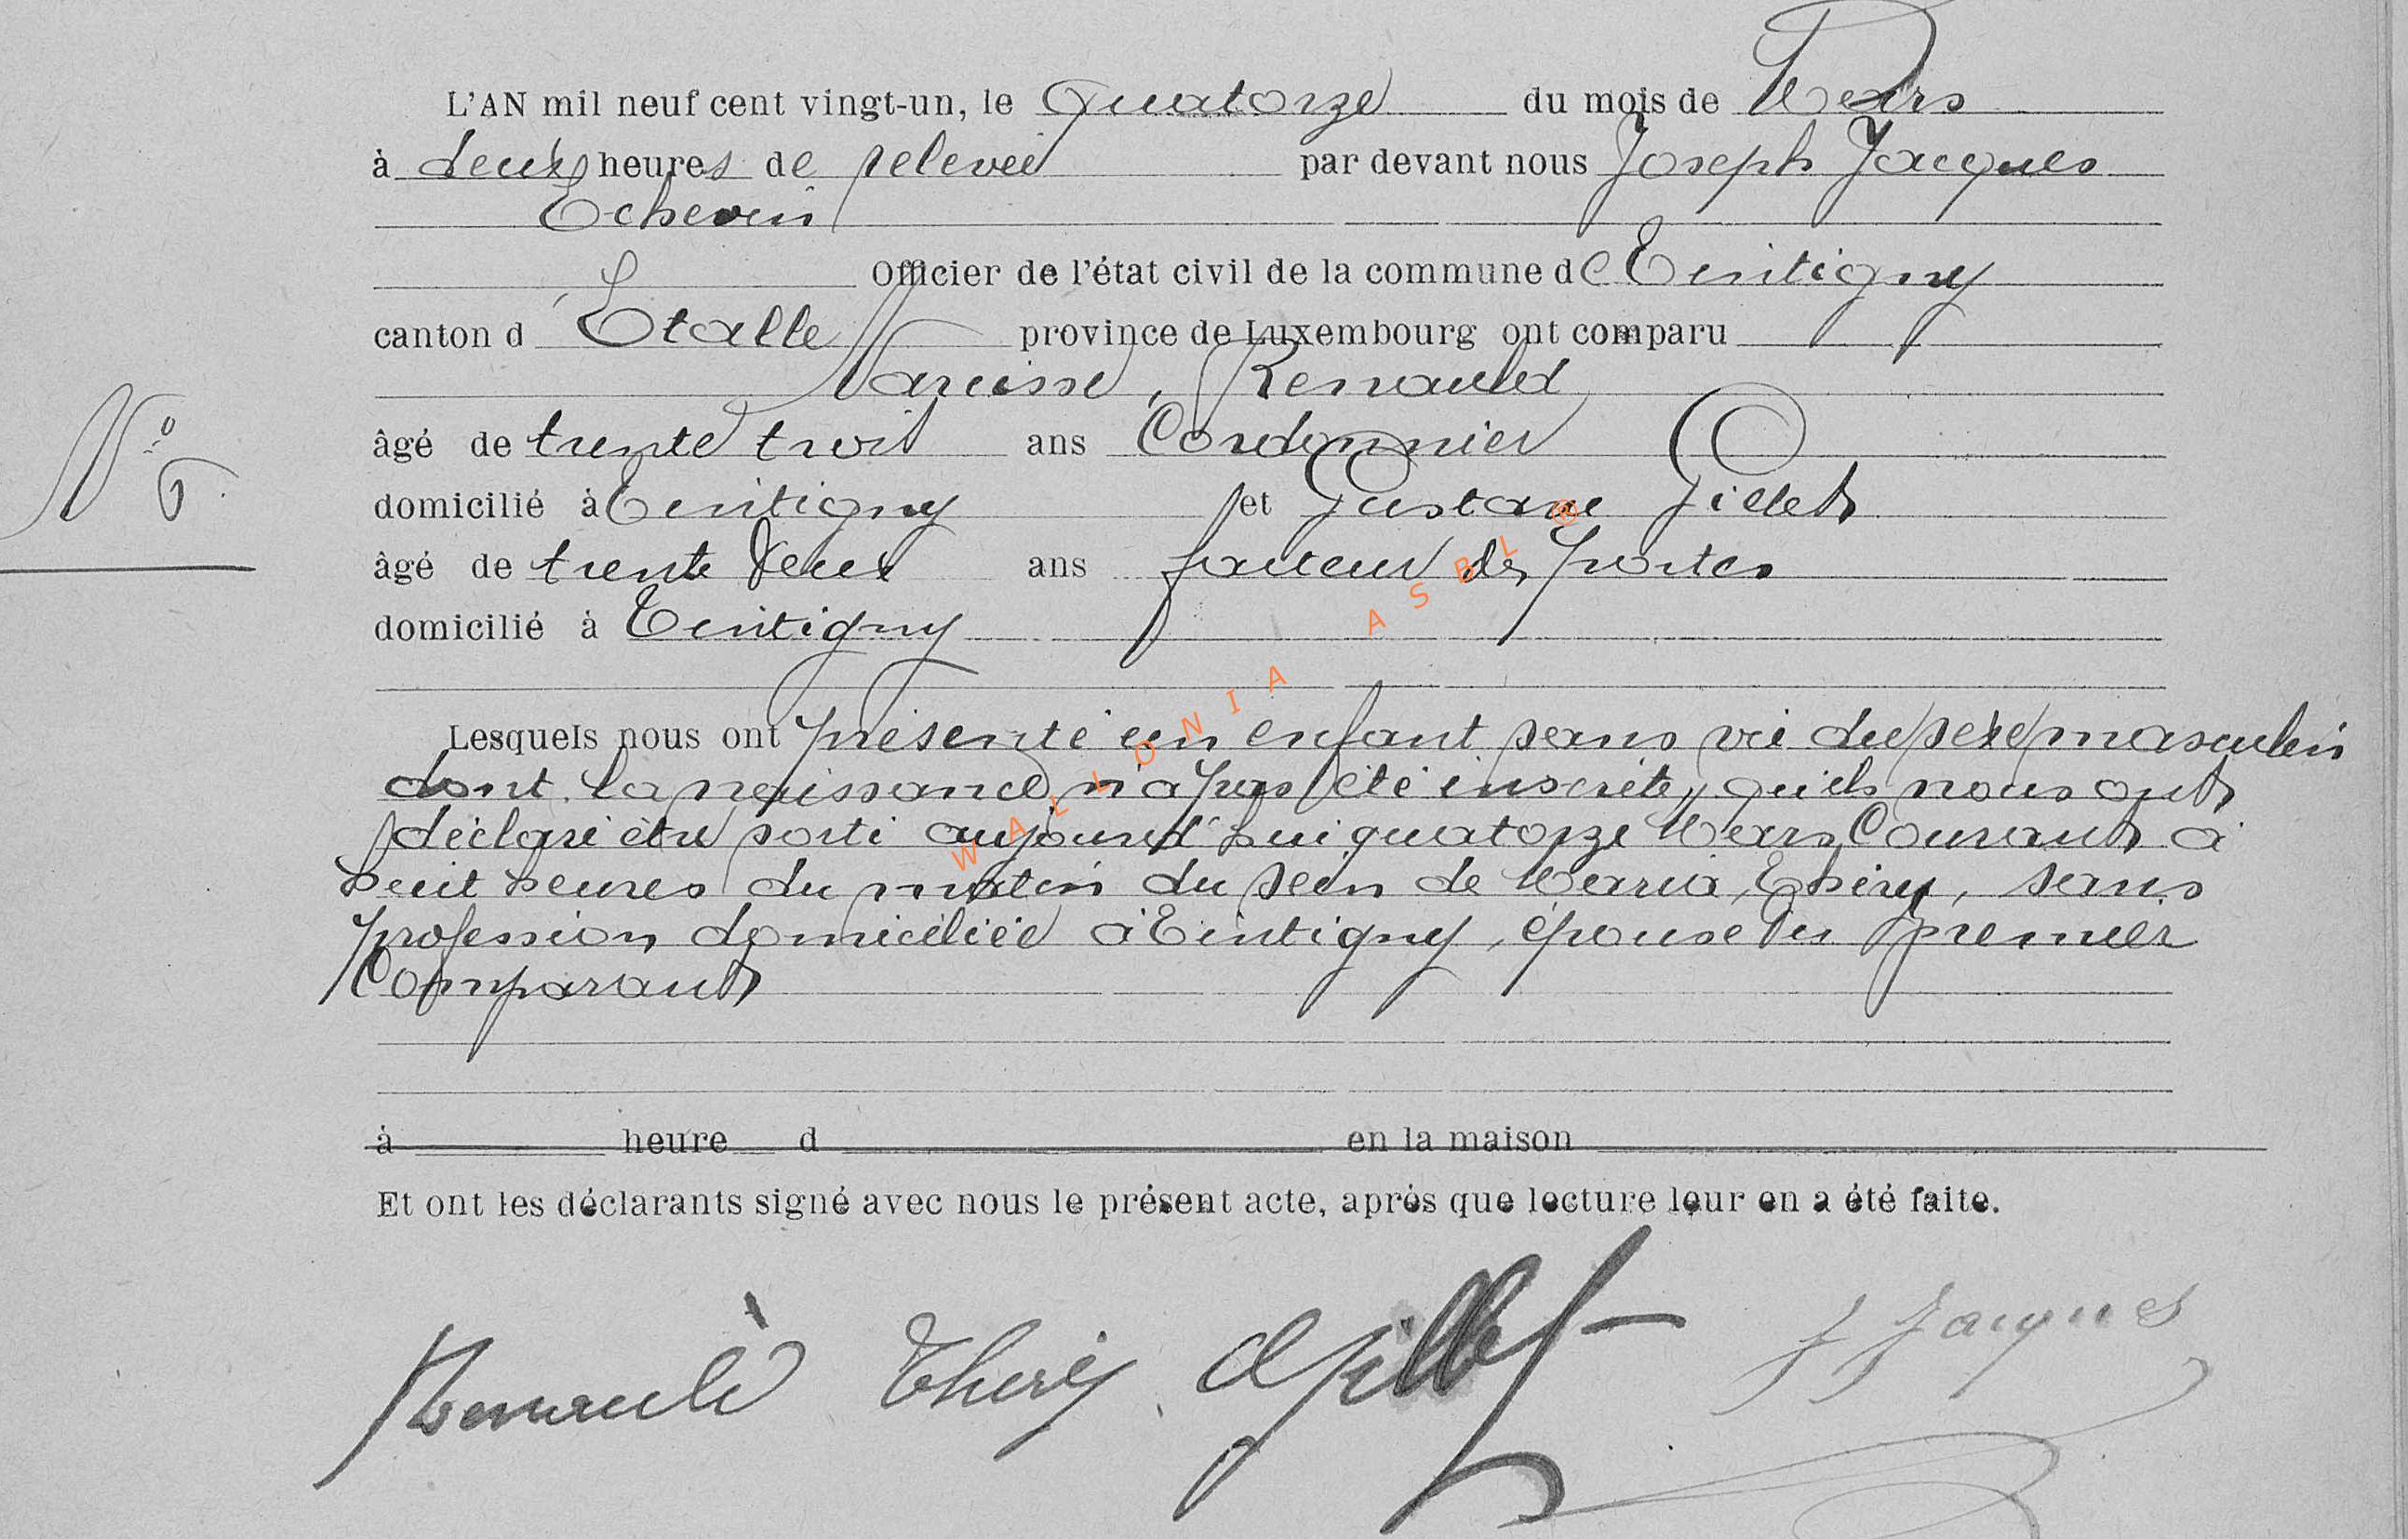 L'AN mil neuf cent vingt-un, le Quatorze du mois de Mars
à deux heures de relevée par devant nous Joseph Jacques
Echevin
Officier de l'état civil de la commune de Tintigny
canton d'Etalle province de Luxembourg ont comparu
Narcisse, Renauld
âgé de trente trois ans Cordonnier
N° 6
domicilié à Tintigny et Gustave Gillet
âgé de trente deux ans facteur des postes
domicilié à Tintigny
Lesquels nous ont présenté un enfant sans vie du sexe masculin
dont la naissance n'a pas été inscrite, qu'ils nous ont
déclaré être sorti aujourd'hui quatorze Mars Courant à
huit heures du matin du sein de Maria, Théry, sans
profession domiciliée à Tintigny, épouse du premier
Comparant
à heure d en la maison
Et ont les déclarants signé avec nous le présent acte, après que lecture leur en a été faite.
Renauld Thery GGillet J Jacques
WALLONIA ASBL ®